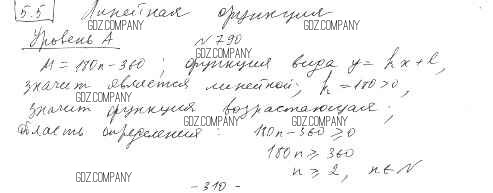 5.5 Линейная функция
GDZ.COMPANY
Уровень А
GDZ.COMPANY
№ 790
GDZ.COMPANY
M = 180n - 360 ; функция вида y = kx + l,
GDZ.COMPANY
значит является линейной; k = 180 > 0,
GDZ.COMPANY
значит функция возрастающая;
GDZ.COMPANY
область определения: 180n - 360 ≥ 0
GDZ.COMPANY
180n ≥ 360
n ≥ 2, n ∈ N
GDZ.COMPANY
- 310 -